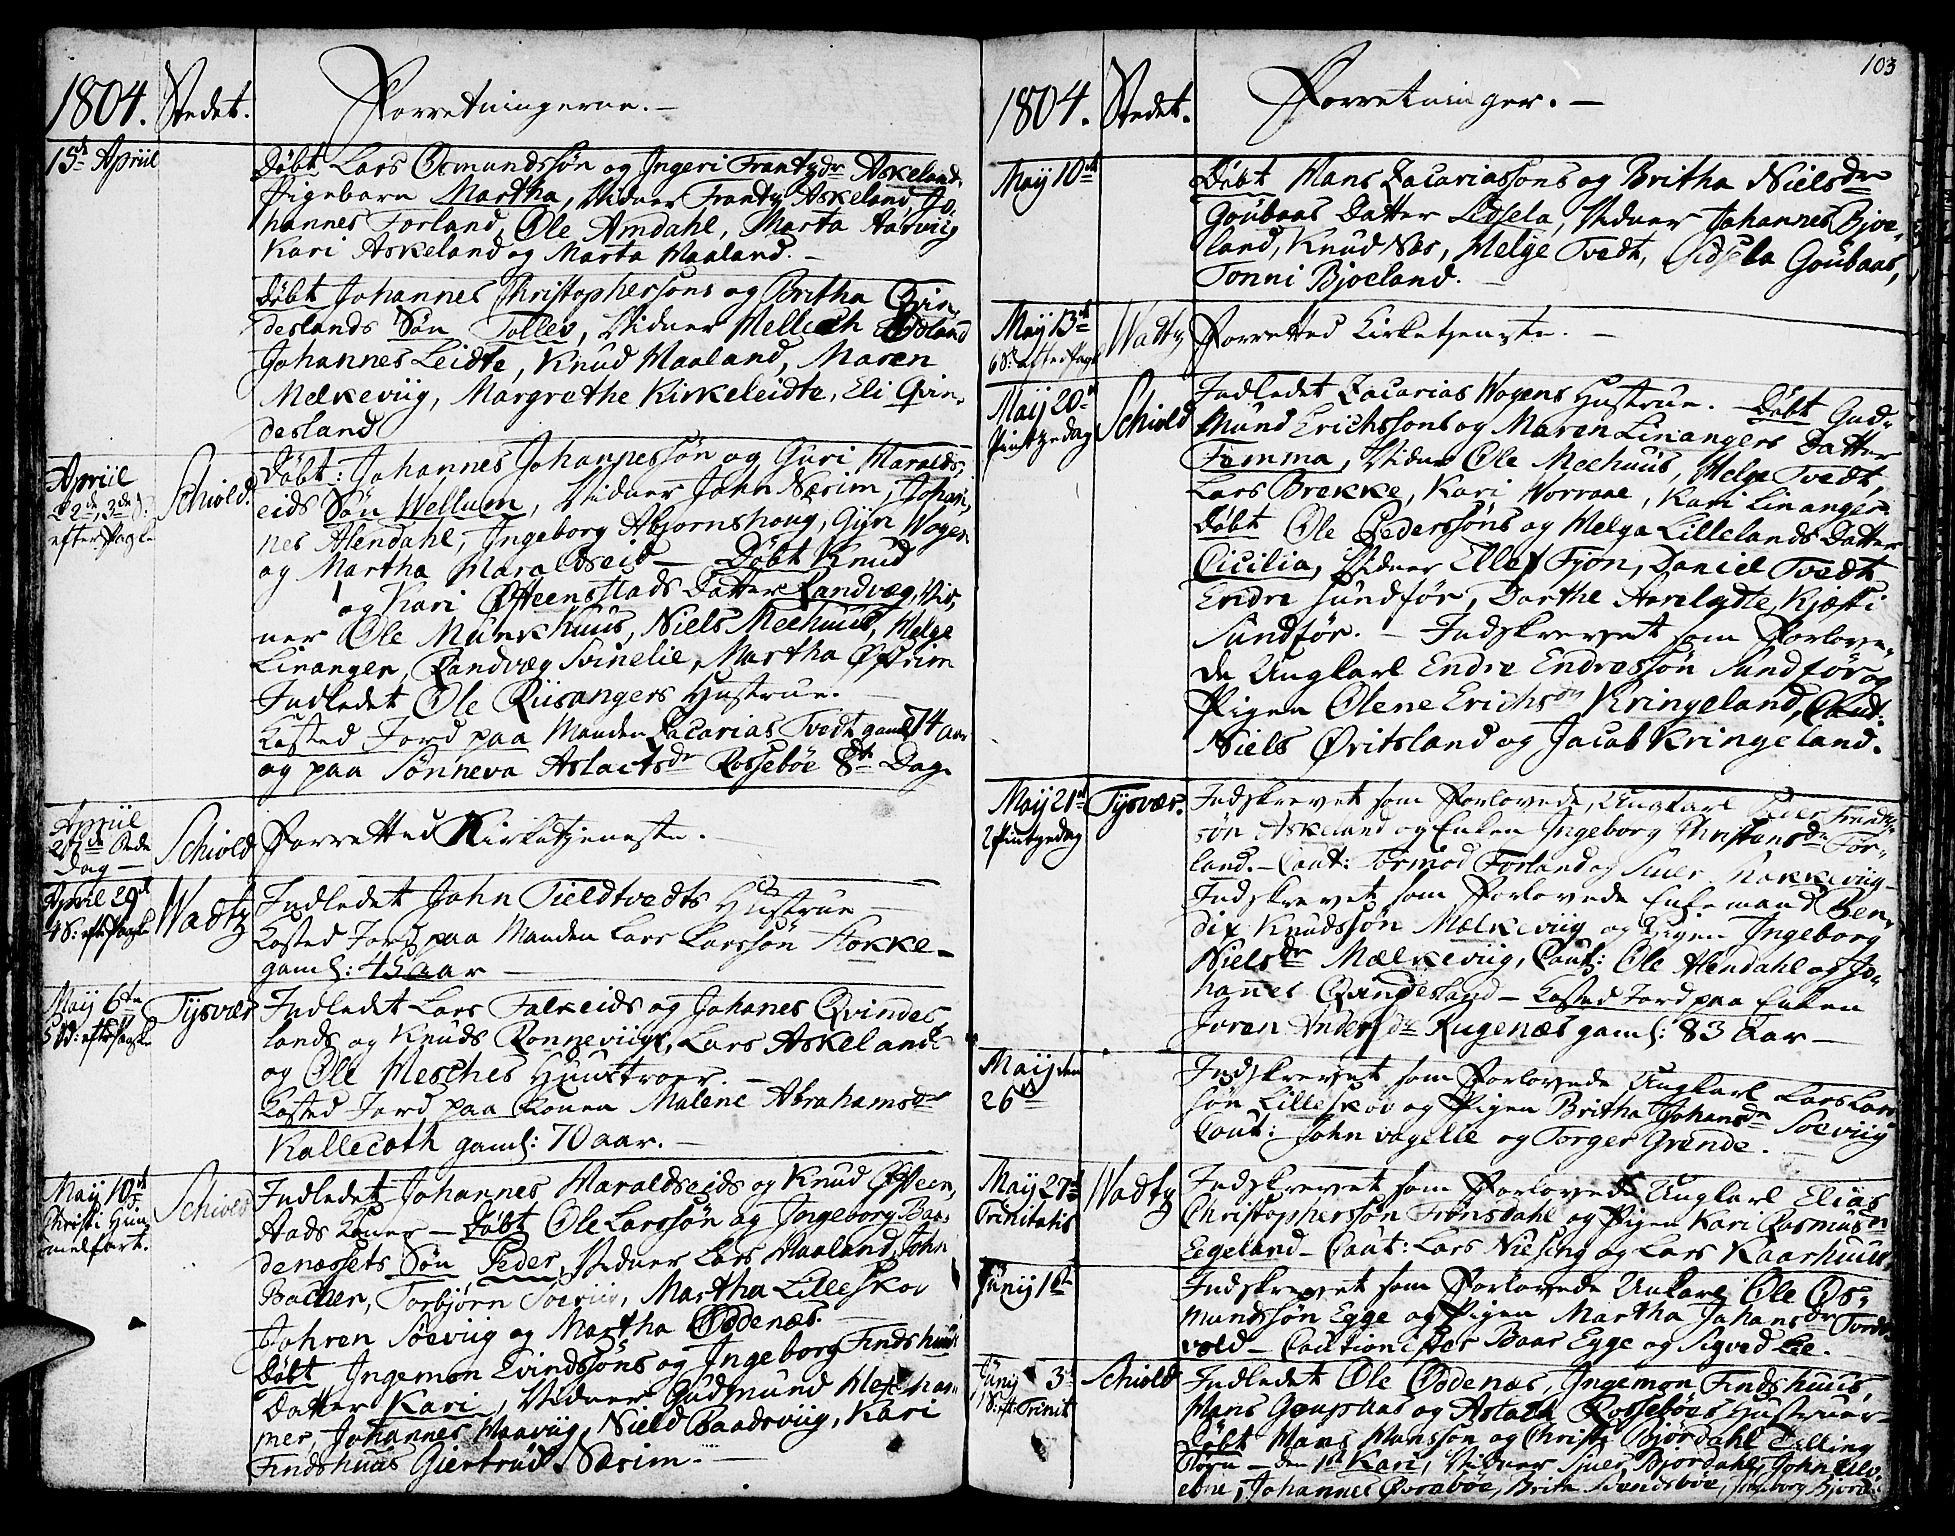 1804. Stedet. Forretningerne. –
15de Apriil
Döbt Lars Osmundssøn og Ingeri Frantzdr Askeland
Pigebarn Martha, Vidner Frantz Askeland, Jo-
hannes Forland, Ole Amdahl, Marta Aarviig
Kari Askeland og Marta Haaland. –
Döbt Johannes Christophersøns og Britha Qvin-
deslands Søn Tollev, Vidner Mellech Eidsland
Johannes Leidte, Knud Haaland, Maren
Melkeviig, Margrethe Kirkeleidte, Eli Qvin-
desland
Apriil
22de, 3de S:
efter Paaske
Schiold.
Döbt: Johannes Johannessøn og Guri Haralds-
eids Søn Wellum, Vidner John Nærim, Johan-
nes Alendahl, Ingeborg Abjornshoug, Gyri Wogen
og Martha Haraldseid – Döbt Knud
og Kari Øfteensstads Datter Randvæg, Vid-
ner Ole Munkhuus, Niels Meehuus, Helge
Linanger, Randvæg Svinelie, Martha Øfrim
Indledet Ole Riisangers Hustrue. –
Kasted Jord paa Manden Zacarias Tvedt gaml 74 aar
og paa Sønneva Aslactsdr Rossebøe 8te Dag.
Apriil
27de Bede
Dag –
Schiold
Forretted Kirketjeneste. –
April 29de
4 S: efter Paaske
Wadtz
Indledet John Tieldtvedts Hustrue –
Kasted Jord paa Manden Lars Larssøn Stokke-
gaml: 45 aar –
Maij 6te
5 S: efter Paaske
Tysvær
Indledet Lars Falkeids og Johanes Qvindes
lands og Knuds Rønneviigs, Lars Askelands
og Ole Hesches Huustroer. –
Kasted Jord paa Konen Malene Abrahamsdr
Kallecoth gaml: 70 aar. –
Maij 10de
Christi Him-
melfart.
Schiold
Indledet Johannes Haraldseids og Knud Øfteen-
stads Koner – Döbt Ole Larssøn og Ingeborg Baa-
denæssets Søn Peder, Vidner Lars Haaland, John
Backer, Torbjørn Soeviig, Martha Lilleskov
Johren Søeviig og Martha Oddenæs. –
Döbt Ingemon Evindssøns og Ingeborg Findshuus
Datter Kari, Vidner Gudmund
mer Johannes Waaviig, Nield Baadsviig, Kari
Findshuus Giertrud Nærim. –
103
1804. Stedet. Forretninger. –
Maij 10de
Döbt Hans Zacariassøns og Britha Nielsdr
Goubaas Datter Sidsela, Vidner Johannes Bjoe-
land, Knud Næs, Helge Tvedt, Sidsela Goubaas,
Tonni Bjoeland.
Maij 13de
6 S: efter Paaske
Wadtz
Forretted Kirketjeneste. –
Maij 20de
Pintzedag
Schiold
Indledet Zacarias Wogens Hustrue. Döbt Gud-
mund Erichssøns og Maren Linangers Datter
Femma, Vidner Ole Meehuus, Helge Tvedt,
Lars Brekke, Kari Worraae, Kari Linanger
Döbt Ole Pederssøns og Helga Lillelands Datter
Cicilia, Vidner Ellef Fjon, Daniel Tvedt
Endre Sundfør, Dorthe Aarelydte, Kjæsti
Sundfør. – Indskrevet som Forlove-
de Ungkarl Endre Endressøn Sundfør og
Pigen Olene Erichsdr Kringeland, Caut:
Niels Øvitsland og Jacob Kringeland.
Maij 21de
2 Pintzedag
Tysvær.
Indskrevet som Forlovede, Ungkarl Peder Frantz-
søn Askeland og Enken Ingeborg Christensdr For-
land. – Caut: Tormod Forland og Siver Nakkeviig –
Indskrevet som Forlovede Enkemand Ben-
dix Knudssøn Mælkeviig og Pigen Ingeborg
Nielsdr Mælkeviig, Caut: Ole Alendahl og Jo-
hannes Qvindesland – Kasted Jord paa Enken
Joren Andersdr Rugenæs gaml: 83 Aar –
Maij den
26de
Indskrevet som Forlovede Ungkarl Lars Lars
søn Lilleskov og Pigen Britha Johansdr Soeviig
Caut: John Vagelle og Torger Grinde. –
Maij 27de
Trinitatis
Wadtz
Indskrevet som Forlovede Ungkarl Elias
Christopherssøn Frønsdahl og Pigen Kari Rasmusdr
Eegeland – Caut: Lars Niesing og Lars Kaarhuus
Junij 1ste
Indskrevet som Forlovede Unkarl Ole Os-
mundssøn Egge og Pigen Martha Johansdr Tveite-
vold – Cautionister Baar Egge og Sigved Lie. –
Junij 3de
1 S: eft: Trinit
Schiold
Indledet Ole Oddenæs, Ingemon Findshuus,
Hans Goupaas og Aslach Rossebøes Hustruer –
Döbt Hans Hanssøn og Christi Bjordahl Tvilling
Børn – den 1ste Kari, Vidner Siver Bjordahl, John
Johannes Øvrabøe, Brita Svendsbøe, Ingeborg Bjordahl